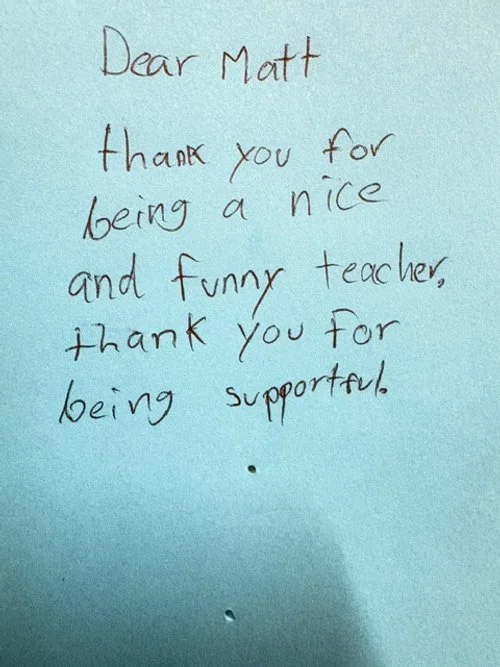 Dear Matt
thank you for
being a nice
and funny teacher,
thank you for
being supportful.